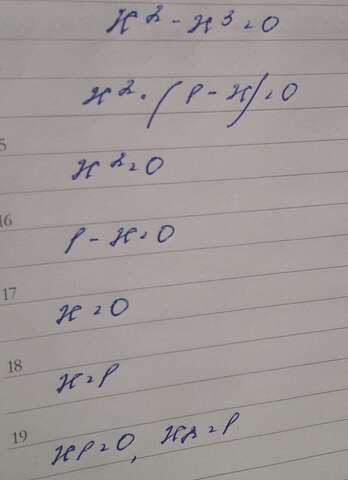 x² - x³ = 0
x² · (1 - x) = 0
5
x² = 0
16
1 - x = 0
17
x = 0
18
x = 1
19
x1 = 0, x2 = 1